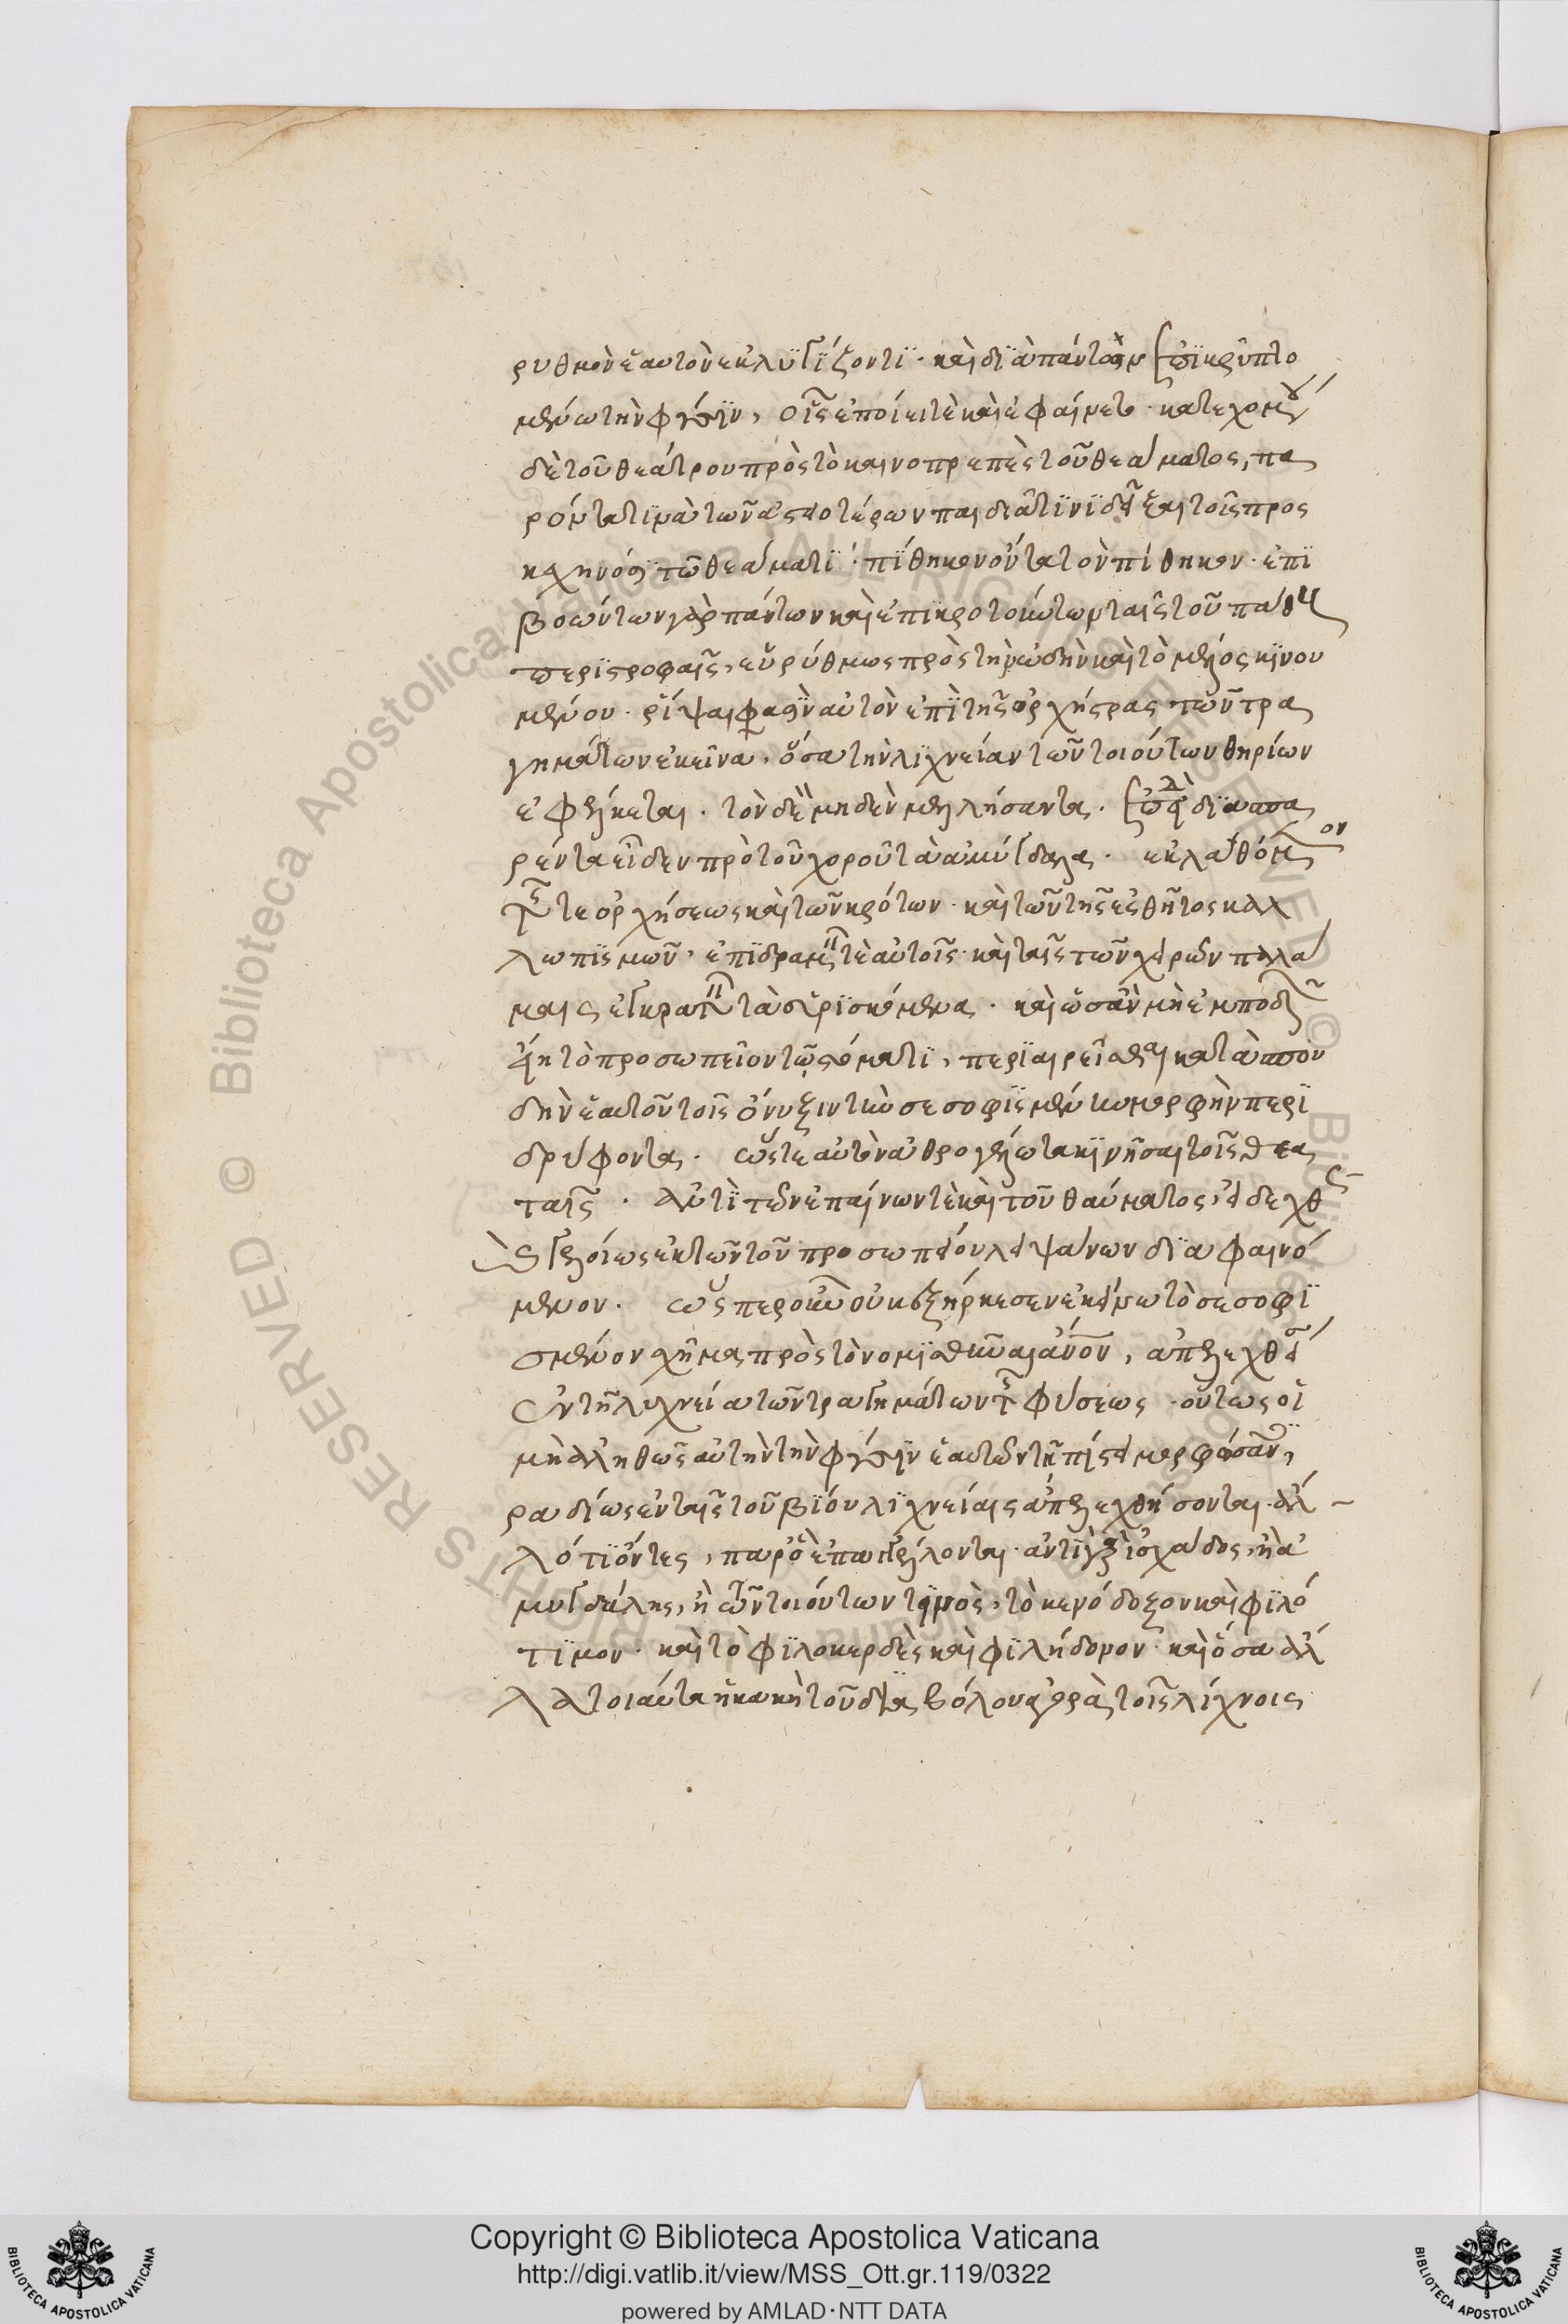 ρυθμὸν ἑαυτὸν ἐκλυγίζοντι· καὶ διὰ πάντων ἐπικρύπτο
μένω τὴν φύσιν, οἷς ἐποίει τὲ καὶ ἐφαίνετο· κατεχομένου
δὲ τοῦ θεάτρου πρὸς τὸ καινοπρεπὲς τοῦ θεάματος, πα
ρόντα τινὰ τῶν ἀστειοτέρων παιδιᾶ τινὶ δεῖξαι τοῖς προς
κεχηνόσι τῶ θεάματι· πίθηκον ὄντα τὸν πίθηκον· ἐπι
βοώντων γὰρ πάντων καὶ ἐπικροτούντων ταῖς τοῦ πιθήκου
περιστροφαῖς, εὐρύθμως πρὸς τὴν ὠδὴν καὶ τὸ μέλος κινου
μένου· ῥίψαι φασὶν αὐτὸν ἐπὶ τῆς ὀρχήστρας τῶν τρα
γημάτων ἐκεῖνα, ὅσα τὴν λιχνείαν τῶν τοιούτων θηρίων
ἐφέλκεται. τὸν δὲ μηδὲν μελλήσαντα. ἐπειδὴ διασπα
ρέντα εἶδεν πρὸ τοῦ χοροῦ τὰ ἀμύγδαλα. ἐκλαθόμενον
τῆς τε ὀρχήσεως καὶ τῶν κρότων· καὶ τῶν τῆς ἐσθῆτος καλ
λωπισμῶν· ἐπιδραμεῖν τὲ αὐτοῖς· καὶ ταῖς τῶν χειρῶν παλά
μαις ἐγκρατεῖν τὰ εὑρισκόμενα. καὶ ὡς ἂν μὴ ἐμποδὼν
εἴη τὸ προσωπεῖον τῶ στόματι, περιαιρεῖσθαι κατὰ σπου
δὴν ἑαυτοῦ τοῖς ὄνυξιν τὴν σεσοφισμένην μορφὴν περι
δρύφοντα. ὥστε αὐτὸν ἀθρόον γέλωτα κινῆσαι τοῖς θεα
ταῖς. ἀντὶ τῶν ἐπαίνων τὲ καὶ τοῦ θαύματος, εἰδεχθῶς
καὶ γελοίως ἐκ τῶν τοῦ προσωπείου λειψάνων διαφαινό
μενον. ὥσπερ οὖν οὐκ ἐξήρκεσεν ἐκείνω τὸ σεσοφι
σμένον σχῆμα πρὸς τὸ νομισθῆναι ἄνον, ἀπελεγχθείσης
ἐν τῆ λιχνεία τῶν τραγημάτων τῆς φύσεως· οὕτως οἱ
μὴ ἀληθῶς αὐτὴν τὴν φύσιν ἑαυτῶν τῆ πίστει μορφώσαντες,
ῥαδίως ἐν ταῖς τοῦ βίου λιχνείαις ἀπελεγχθήσονται· ἄλ
λό τι ὄντες, παρ' ὃ ἐπαγγέλλονται· ἀντὶ γὰρ ἰσχάδος, ἢ ἀ
μυγδάλης, ἢ τῶν τοιούτων τινὸς, τὸ κενόδοξον καὶ φιλό
τιμον· καὶ τὸ φιλοκερδὲς καὶ φιλήδονον· καὶ ὅσα ἄλ
λα τοιαῦτα ἡ κακὴ τοῦ διαβόλου ἀγορὰ τοῖς λίχνοις
Copyright © Biblioteca Apostolica Vaticana
http://digi.vatlib.it/view/MSS_Ott.gr.119/0322
powered by AMLAD·NTT DATA